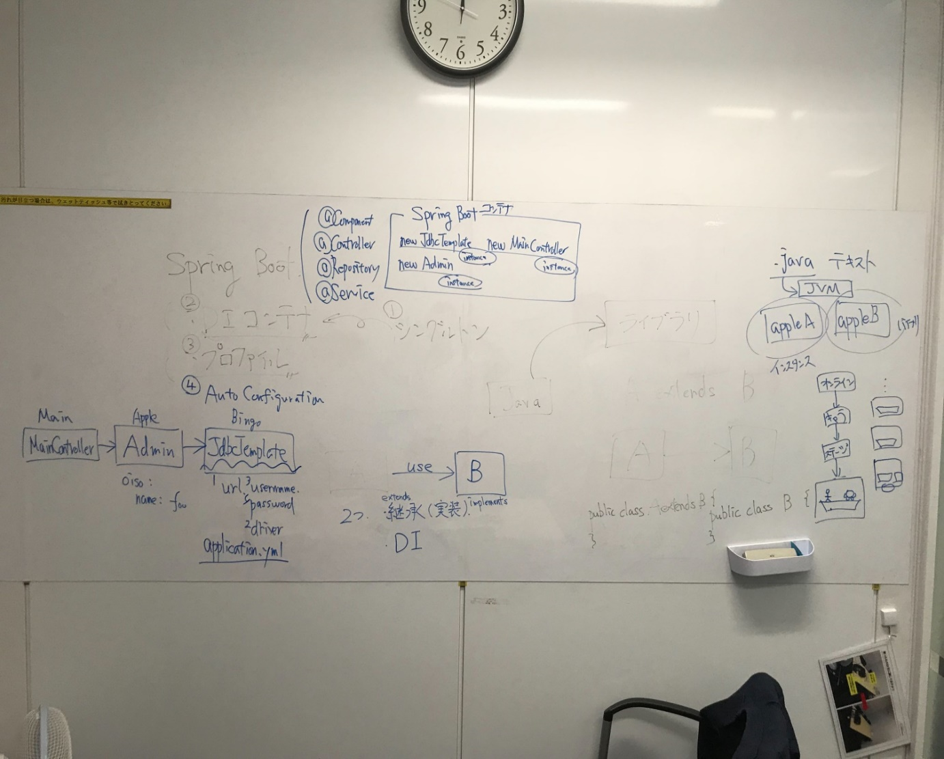 9
3
8
4
7
5
6
@Component
@Controller
@Repository
@Service
Spring Boot コンテナ
new JdbcTemplate new MainController
instance
instance
new Admin
instance
Spring Boot
②
DIコンテナ
①
シングルトン
③
プロファイル
④ Auto Configuration
Main
Apple
Bingo
MainController
Admin
JdbcTemplate
oiso:
name: foo
1 url
3 username
password
2 driver
application.yml
use
B
extends
2つ ・継承(実装)
implements
・DI
ライブラリ
Java
extends B
A
B
public class extends B {
}
public class B {
}
.java テキスト
JVM
appleA
appleB
インスタンス
オンライン